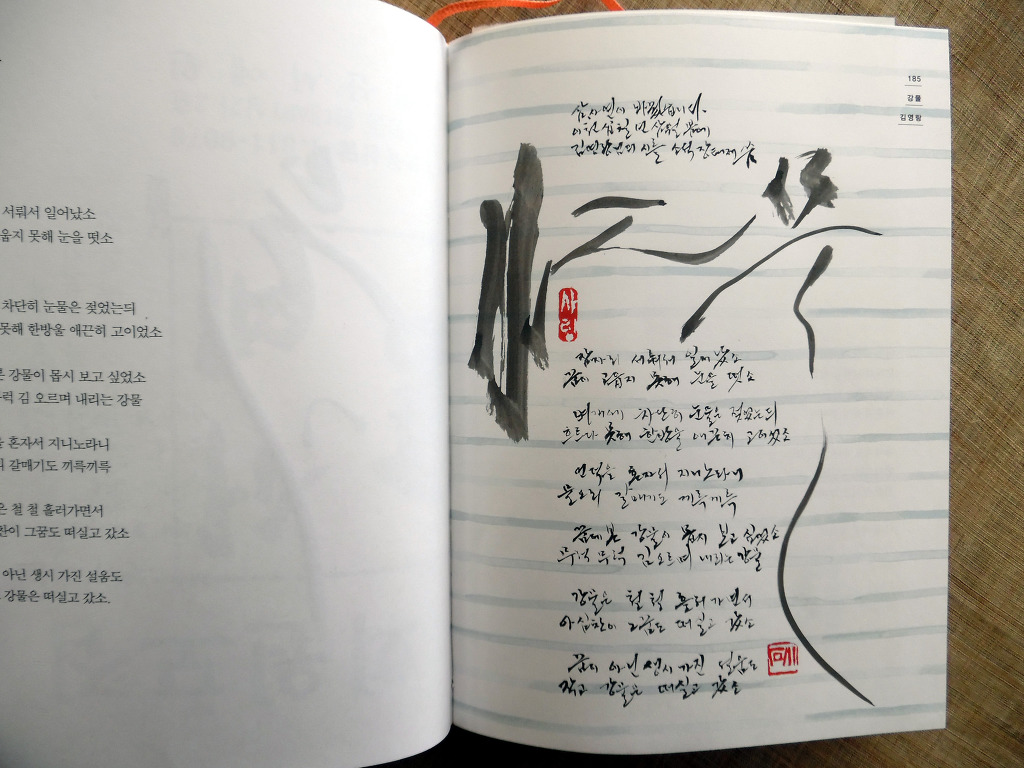 서뤄서 일어났소
움지 못해 눈을 떳소
차단히 눈물은 젖었는듸
못해 한방울 애끈히 고이었소
강물이 몹시 보고 싶었소
럭 김 오르며 내리는 강물
혼자서 지니노라니
갈매기도 끼륵끼륵
은 철 철 흘러가면서
찬이 그꿈도 떠실고 갔소
아닌 생시 가진 설움도
강물은 떠실고 갔소.
185
강물
김영랑
사랑
잠자리 서뤄서 일어났소
꿈이 고웁지 못해 눈을 떳소
벼개에 차단히 눈물은 젖었는듸
흐르다 못해 한방울 애끈히 고이었소
언덕을 혼자서 지니노라니
물오리 갈매기도 끼륵끼륵
꿈에 본 강물이 몹시 보고 싶었소
무럭 무럭 김 오르며 내리는 강물
강물은 철 철 흘러가면서
아심찬이 그꿈도 떠실고 갔소
꿈이 아닌 생시 가진 설움도
작고 강물은 떠실고 갔소